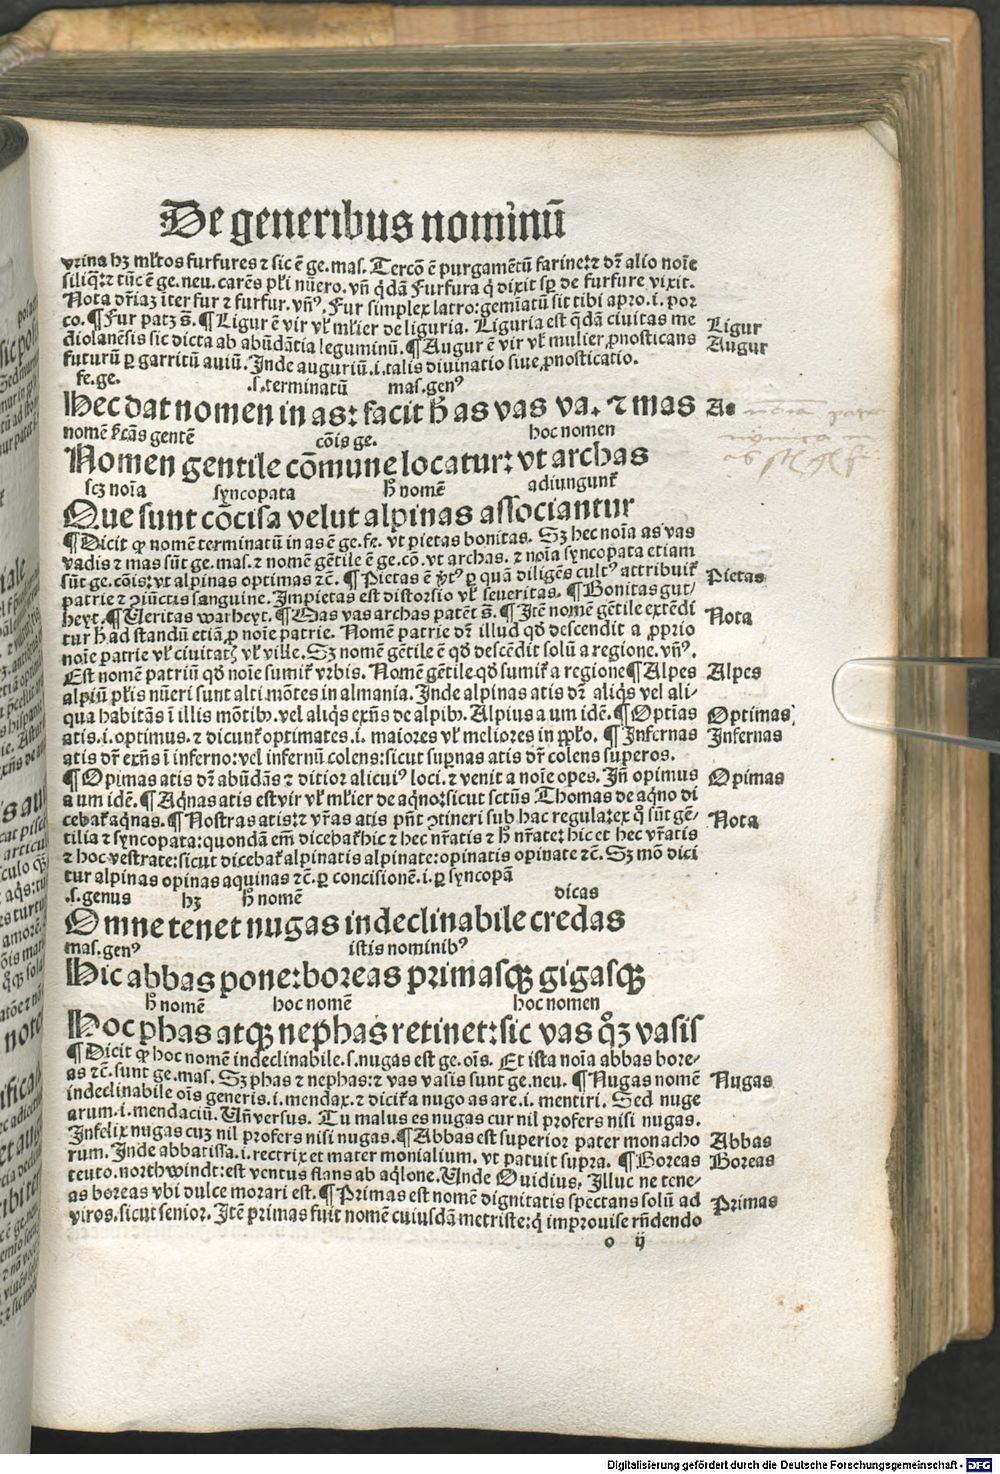 De generibus nominū
vrina hz ml'tos furfures ⁊ sic ē ge. mas. Tercō ē purgamētū farine: ⁊ dr̄ alio noīe
siliq̄: ⁊ tūc ē ge. neu. carēs pl'i nūero. vn̄ q̄dā Furfura q̄ dixit sp̄ de furfure vixit.
Nota dr̄iaz īter fur ⁊ furfur. vn̄⁹. Fur simplex latro: gemīatū sit tibi apro. i. por
co. ¶ Fur patz s̄. ¶ Ligur ē vir vl' ml'ier de liguria. Liguria est q̄dā civitas me
Ligur
diolanēsis sic dicta ab abūdātia leguminū. ¶ Augur ē vir vl' mulier ꝓnosticans
Augur
futurū ꝑ garritū auiū. Inde auguriū. i. talis diuinatio siue ꝓnosticatio.
fe. ge. .s. terminatū mas. gen⁹
Hec dat nomen in as: facit h̄ as vas va. ⁊ mas
As
nomē gentē cōis ge. hoc nomen
Nomen gentile cōmune locatur: vt archas
scz noīa syncopata h̄ nomē adiungunt̄
Que sunt cōcisa velut alpinas associantur
¶ Dicit ꝙ nomē terminatū in as ē ge. fe. vt pietas bonitas. Sz hec noīa as vas
vadis ⁊ mas sūt ge. mas. ⁊ nomē gētile ē ge. cō. vt archas. ⁊ noīa syncopata etiam
sūt ge. cōis: vt alpinas optimas ⁊c̄. ¶ Pietas ē ꝟt⁹ ꝑ quā diligēs cult⁹ attribuit̄
Pietas
patrie ⁊ ꝯiūctis sanguine. Impietas est distorsio vl' seueritas. ¶ Bonitas gut⸗
heyt. ¶ Veritas warheyt. ¶ Mas vas archas patēt s̄. ¶ Itē nomē gētile extēdi
Nota
tur h̄ ad standū etiā ꝓ noīe patrie. Nomē patrie dr̄ illud qd̄ descendit a ꝓprio
noīe patrie vl' ciuitatꝭ vl' ville. Sz nomē gētile ē qd̄ descēdit solū a regione. vn̄⁹.
Est nomē patriū qd̄ noīe sumit̄ vrbis. Nomē gētile qd̄ sumit̄ a regione ¶ Alpes
Alpes
alpiū pl'is nūeri sunt alti mōtes in almania. Inde alpinas atis dr̄ aliq̄s vel ali⸗
qua habitās ī illis mōtibꝫ. vel aliq̄s exn̄s de alpibꝫ. Alpius a um idē. ¶ Optīas
Optimas
atis. i. optimus. ⁊ dicunt̄ optimates. i. maiores vl' meliores in pp̄lo. ¶ Infernas
Infernas
atis dr̄ exn̄s ī inferno: vel infernū colens: sicut sup̄nas atis dr̄ colens superos.
¶ Opimas atis dr̄ abūdās ⁊ ditior alicui⁹ loci. ⁊ venit a noīe opes. In̄ opimus
Opimas
a um idē. ¶ Aq̄nas atis est vir vl' ml'ier de aq̄no: sicut sct̄us Thomas de aq̄no di
cebat̄ aq̄nas. ¶ Nostras atis: ⁊ vr̄as atis pn̄t ꝯtineri sub hac regula: ex q̊ sūt gē⸗
Nota
tilia ⁊ syncopata: quondā em̄ dicebat̄ hic ⁊ hec nr̄atis ⁊ h̄ nr̄ate: hic et hec vr̄atis
⁊ hoc vestrate: sicut dicebat̄ alpinatis alpinate: opinatis opinate ⁊c̄. Sz mō dici
tur alpinas opinas aquinas ⁊c̄. ꝑ concisionē. i. ꝑ syncopā
.s. genus hz h̄ nomē dicas
Omne tenet nugas indeclinabile credas
mas. gen⁹ istis nominib⁹
Hic abbas pone: boreas primasqꝫ gigasqꝫ
h̄ nomē hoc nomē hoc nomen
Hoc phas atqꝫ nephas retinet: sic vas q̊ꝫ vasis
¶ Dicit ꝙ hoc nomē indeclinabile. s. nugas est ge. oīs. Et ista noīa abbas bore⸗
as ⁊c̄. sunt ge. mas. Sz phas ⁊ nephas: ⁊ vas vasis sunt ge. neu. ¶ Nugas nomē
Nugas
indeclinabile oīs generis. i. mendax. ⁊ dicit̄ a nugo as are. i. mentiri. Sed nuge
arum. i. mendaciū. Vn̄ versus. Tu malus es nugas cur nil profers nisi nugas.
Infelix nugas cuz nil profers nisi nugas. ¶ Abbas est superior pater monacho
Abbas
rum. Inde abbatissa. i. rectrix et mater monialium. vt patuit supra. ¶ Boreas
Boreas
teuto. northwindt: est ventus flans ab aq̄lone. Unde Ouidius. Illuc ne tene⸗
as boreas vbi dulce morari est. ¶ Primas est nomē dignitatis spectans solū ad
Primas
viros. sicut senior. Itē primas fuit nomē cuiusdā metriste: q̄ improuise rn̄dendo
o ij
Digitalisierung gefördert durch die Deutsche Forschungsgemeinschaft - DFG